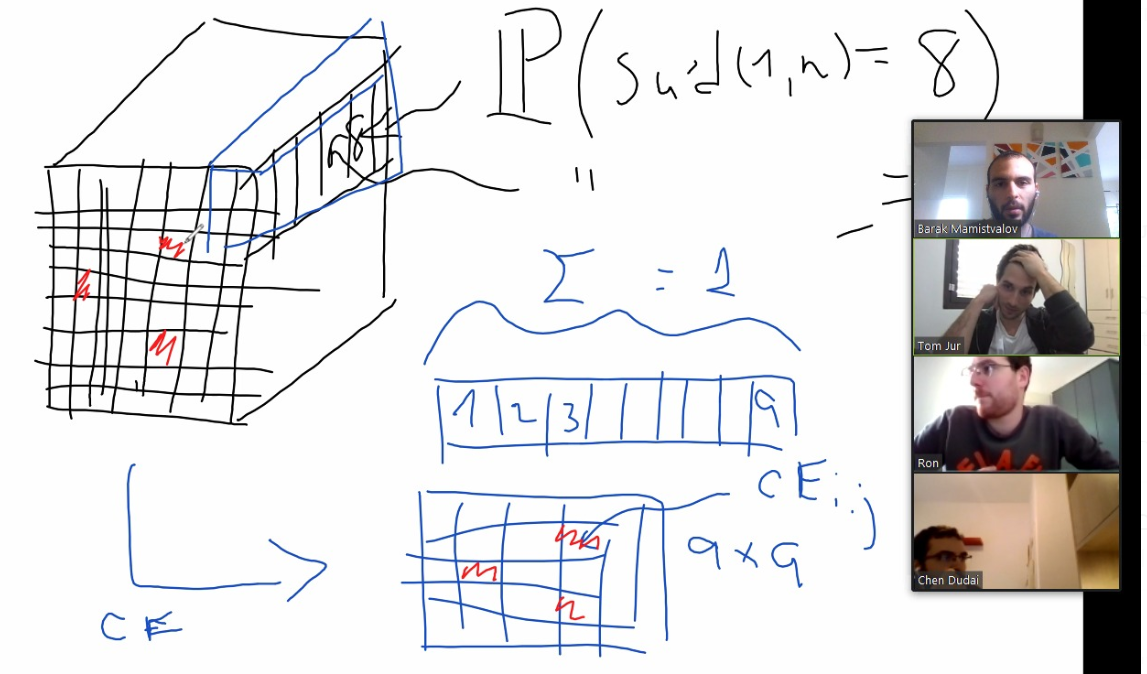 ℙ(sud(1,n)=8)
8
" =
Σ = 1
1 2 3 9
CE i,j
9x9
CE
Barak Mamistvalov
Tom Jur
Ron
Chen Dudai